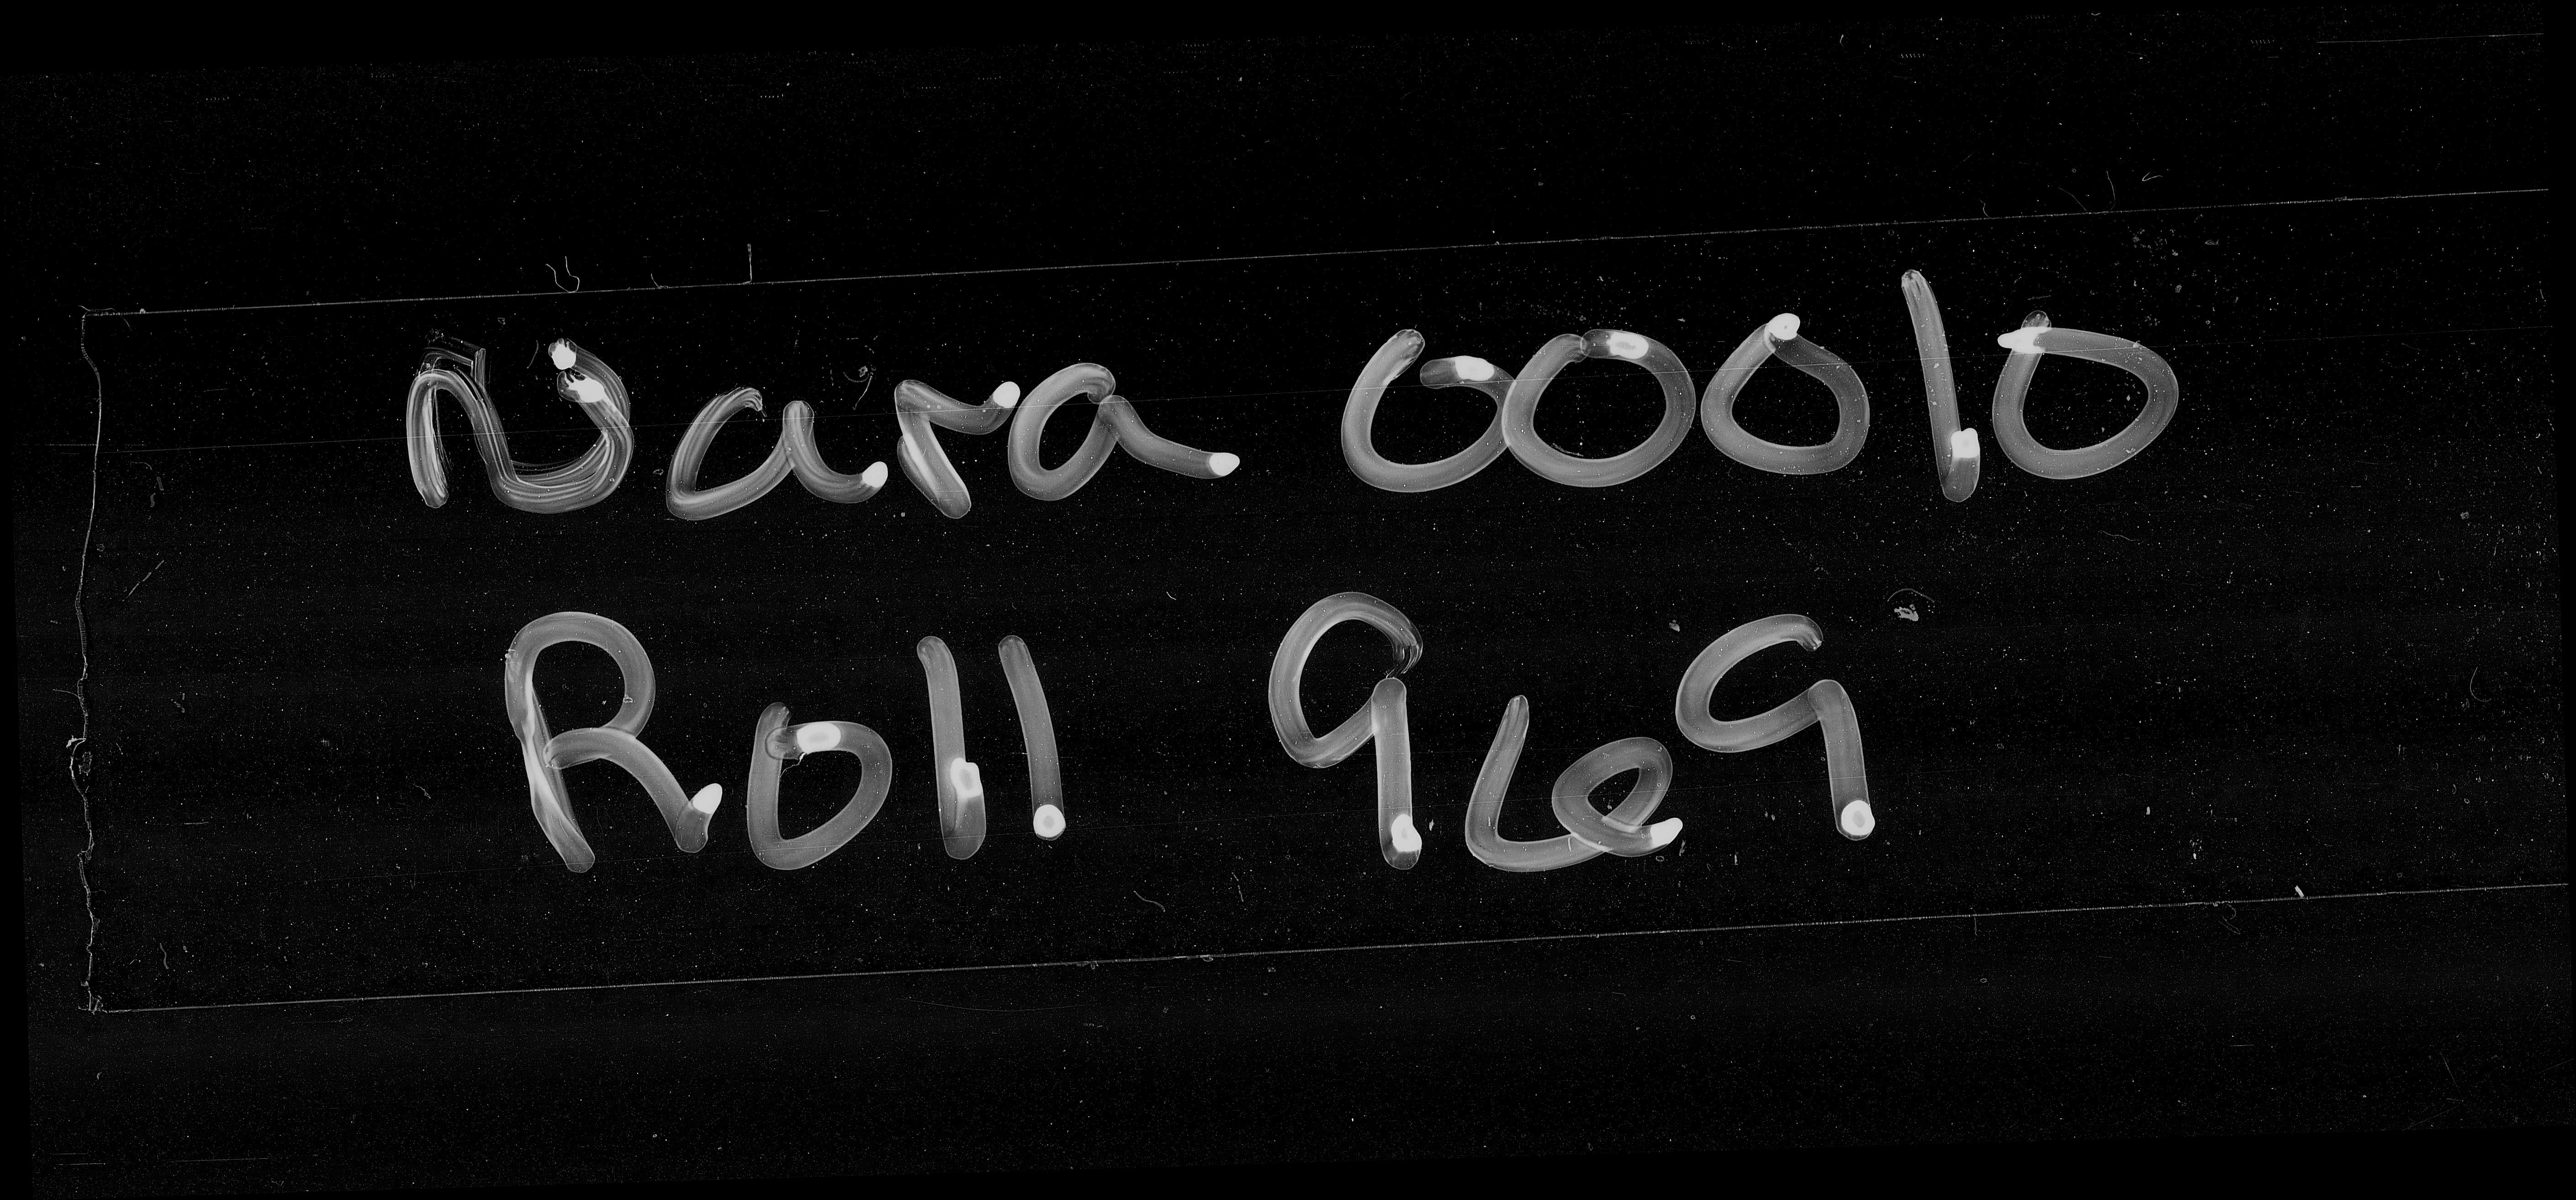 Nara 00010
Roll 969